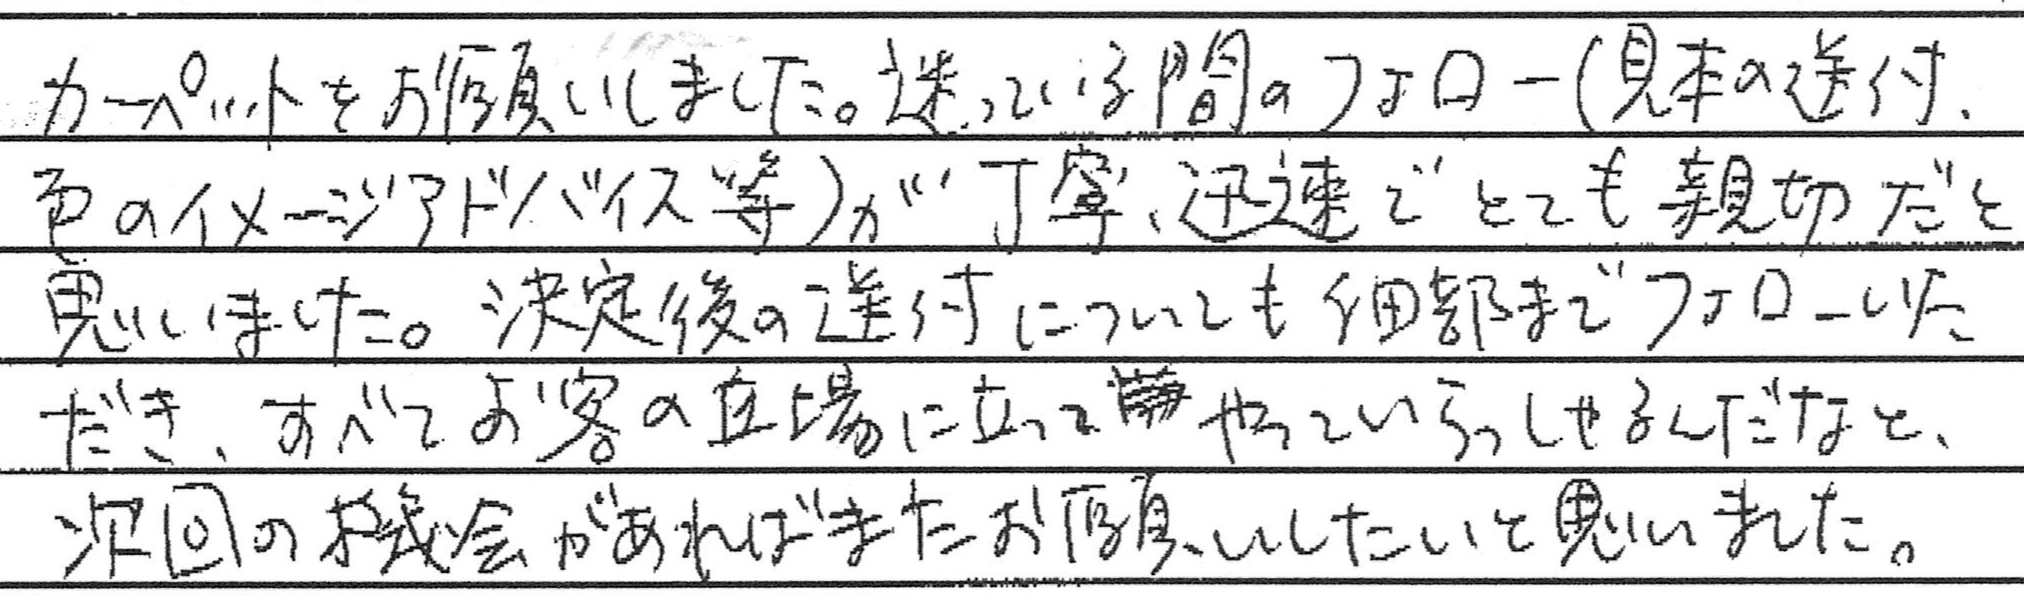 カーペットをお願いしました。迷っている間のフォロー(見本の送付、
色のイメージアドバイス等)が丁寧、迅速でとても親切だと
思いました。決定後の送付についても細部までフォローいた
だき、すべてお客の立場に立ってやっていらっしゃるんだなと、
次回の機会があればまたお願いしたいと思いました。